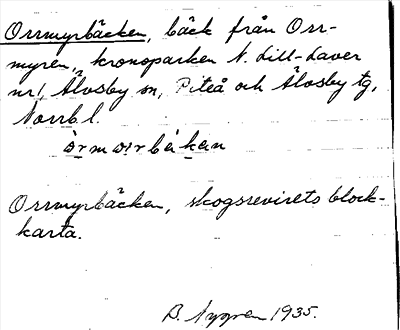 Orrmyrbäcken, bäck från Orr-
myren, kronoparken N. Lill-Laver
nr 1, Älvsby sn, Piteå och Älvsby tg,
Norrb. l.
òrmơrbäkan
Orrmyrbäcken, skogsrevirets block-
karta.
B. Nygren 1935.